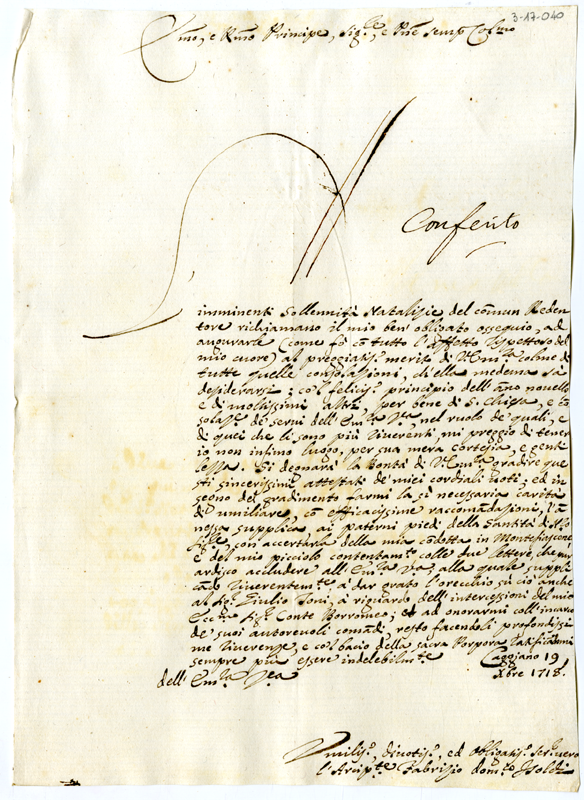 3-17-040
Emo, e Rmo Principe, Sig.re, e Pne Semp Colmo
Conferito
imminenti Sollennità Natalisie del comun Reden
tore richiamano il mio ben' obligato ossequio, ad
augurarle (come fò cõ tutto l'affetto rispettoso del
mio cuore) al pregiatis.o merito di V. Em.za colme di
tutte quelle consolasioni, ch'ella medema sà
desiderarsi; co'l felicis.o principio dell'anno novello
e di moltissimi altri, per bene di S. Chiesa, e cõ
solas.e de' servi dell'Em.za V.a, nel ruolo de' quali, e
di quei che li sono più riverenti, mi pregio di tener
io non infimo luogo, per sua mera cortesia, e gent
lessa. Si degnarà la bontà di V. Em.za gradire que
sti sincerissimi attestati de' miei cordiali voti, ed in
segno del gradimento farmi la sì necessaria carità
di umiliare, cõ efficacissime raccomãdasioni, l'an
nessa supplica ai paterni piedi della Santità di N.o
Sig.re, con accertarla della mia cõdotta in Montefiascone
e del mio picciolo contentam.to colle due lettere, che
ardisco accludere all'Em.za V.a, alla quale suppli
cãdo riverentem.te a dar grato l'orecchio sù ciò anche
al Sig.r Giulio Toni, à riguardo dell'intercessioni del mio
Ecc.mo Sig.r Conte Borromeo, ed ad onorarmi coll'incarco
de' suoi autorevoli comãdi, resto facendoli profondissi
me riverense, e col bacio della sacra Porpora
sempre più essere indelebilm.te Caggiano 19
Xbre 1718.
dell'Em.za V.a
Umilis.o, divotis.o, ed obligatis.o servi vero
l'Arcip.te Fabrisio Dom.co Isoldi